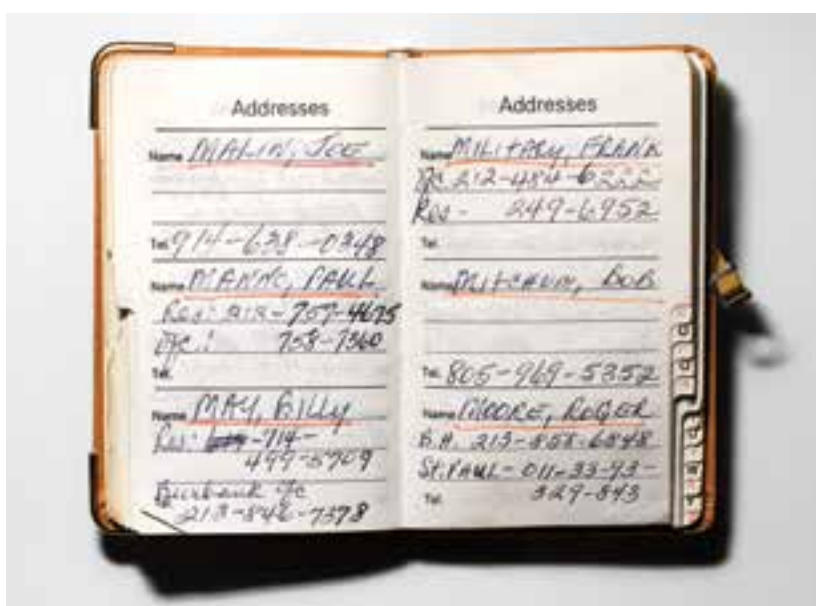 Addresses
Name MALIN, JOE
Tel. 914-638-0348
Name MANNO, PAUL
Res: 212-757-4675
Ofc: 758-7360
Tel.
Name MAY, BILLY
Res: 714-
499-5709
Burbank Ofc
213-846-7378
Addresses
Name MILITARY, FRANK
Ofc 212-484-6222
Res - 249-6952
Tel.
Name MITCHUM, BOB
Tel. 805-969-5352
Name MOORE, ROGER
B.H. 213-858-6548
St. PAUL - 011-33-93-
Tel. 329-343